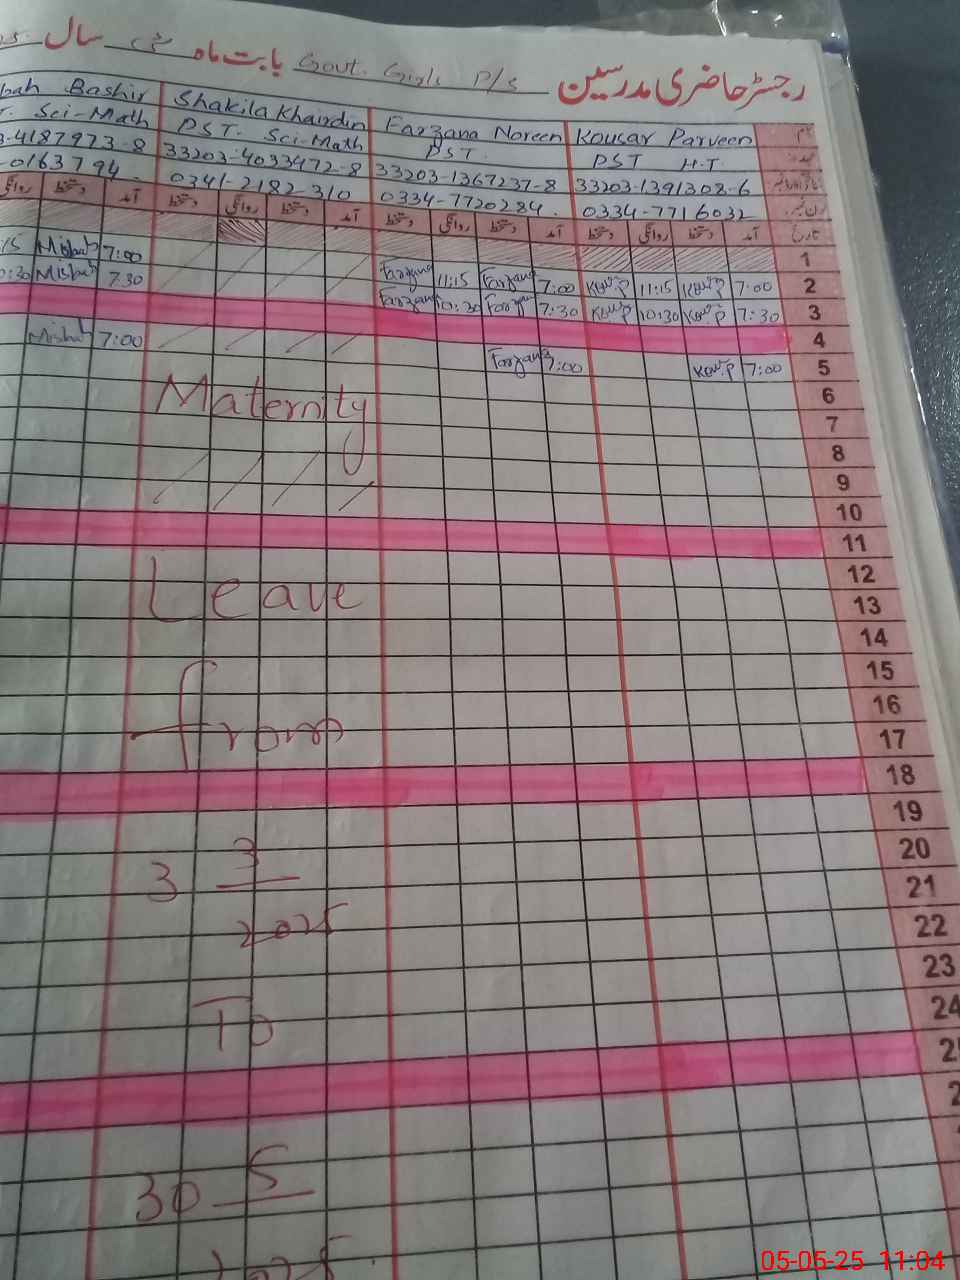 رجسٹر حاضری مدرسین Govt. Girls P/S بابت ماہ مئی سال
Bashir Shakila Khandin Farzana Noreen Kousar Parveen نام
Sci-Math PST. Sci-Math PST. PST H.T عہدہ
-4187973-8 33203-4033472-8 33203-1367237-8 33203-1391308-6
-0163794. 0341-2182-310 0334-7720284. 0334-7716032
روانگی دستخط آمد دستخط روانگی دستخط آمد دستخط روانگی دستخط آمد دستخط روانگی دستخط آمد تاریخ
1
15 Misbah 7:00 Farzana 11:15 Farzana 7:00 Kou.P 11:15 Kou.P 7:00 2
:30 Misbah 7:30 Farzana 10:30 Farzana 7:30 Kou.P 10:30 Kou.P 7:30 3
4
Misbah 7:00 Farzana 7:00 Kou.P 7:00 5
6
Maternity
7
8
9
10
11
12
Leave 13
14
15
16
from 17
18
19
20
3 3 21
2025 22
23
To 24
30 5
2025
05-05-25 11:04